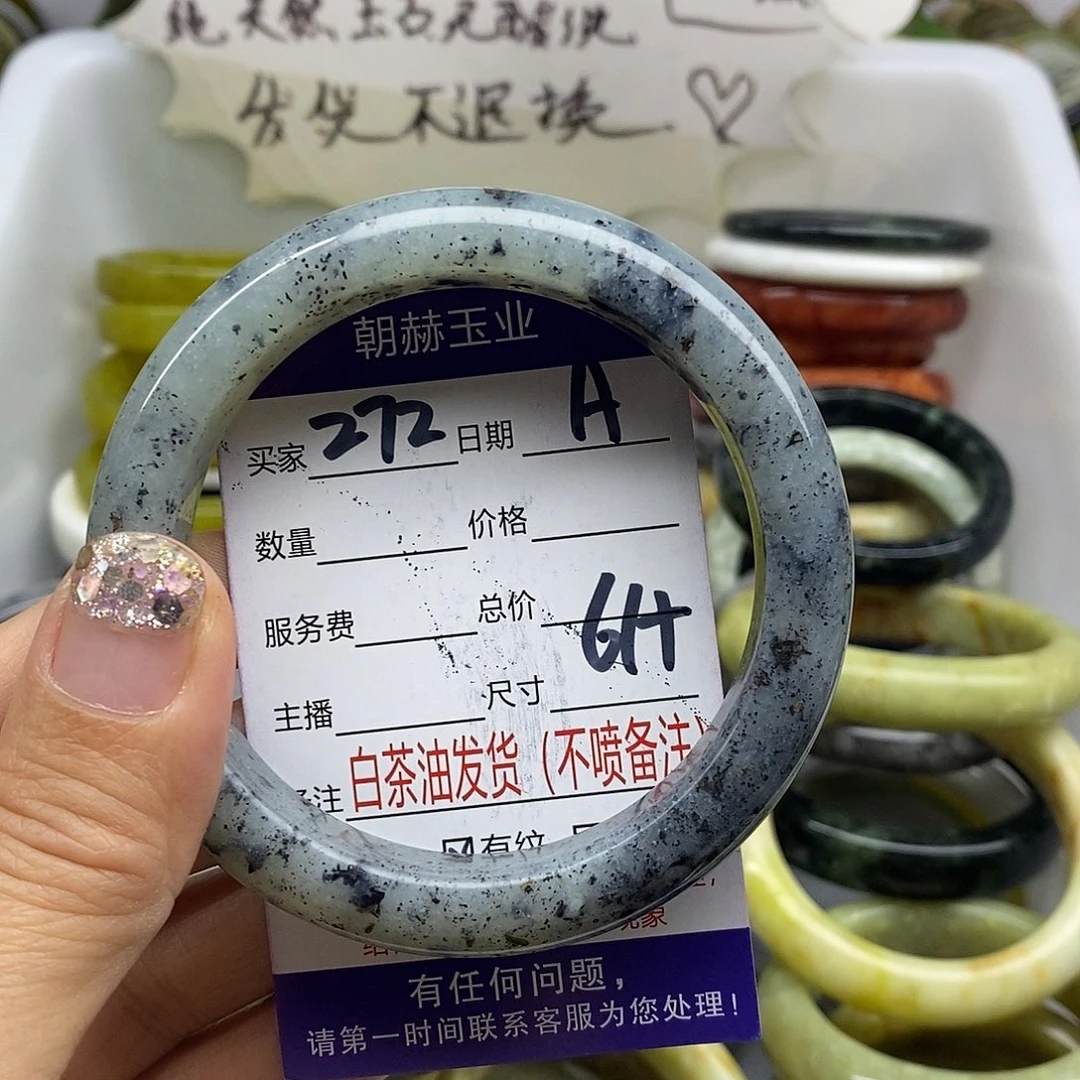 纯天然玉石无酸洗
发货不退换
朝赫玉业
买家 272 日期 A
数量 价格
服务费 总价
主播 尺寸 64
注 白茶油发货（不喷备注）
有纹
现象
有任何问题，
请第一时间联系客服为您处理！